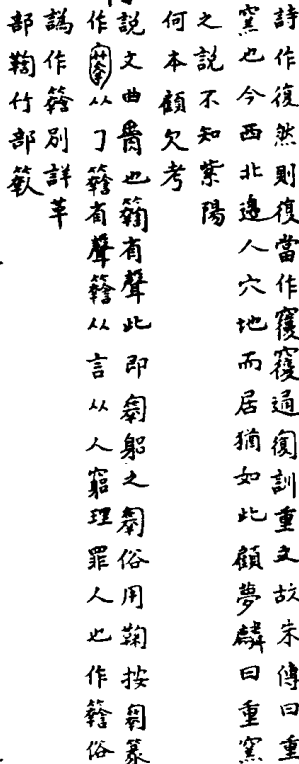 詩作復然則復當作𥨍𥨍通復訓重文故朱傳曰重
窯也今西北邊人穴地而居猶如此顧夢麟曰重窯
之說不知紫陽
何本顧欠考
說文曲脊也䈮有聲此即匑躳之匑俗用鞠按匑篆
作从丁籀有聲籀从言从人窮理罪人也作籀俗
譌作籀別詳革
部鞫竹部䉤